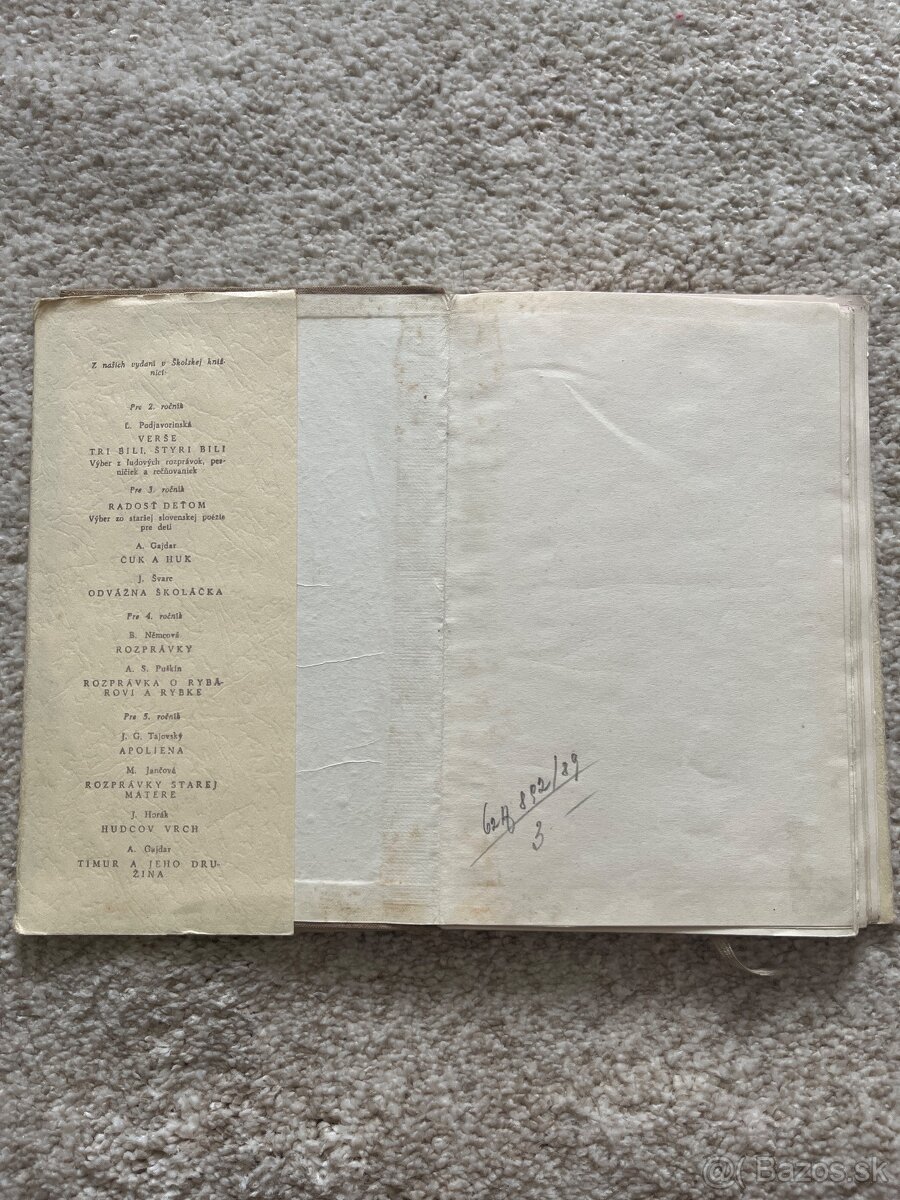 Z našich vydaní v Školskej kniž-
nici
Pre 2. ročník
Ľ. Podjavorinská
VERŠE
TRI BILI, ŠTYRI BILI
Výber z ľudových rozprávok, pes-
ničiek a rečňovaniek
Pre 3. ročník
RADOSŤ DEŤOM
Výber zo staršej slovenskej poézie
pre deti
A. Gajdar
ČUK A HUK
J. Švarc
ODVÁŽNA ŠKOLÁČKA
Pre 4. ročník
B. Němcová
ROZPRÁVKY
A. S. Puškin
ROZPRÁVKA O RYBÁ-
ROVI A RYBKE
Pre 5. ročník
J. G. Tajovský
APOLIENA
M. Jančová
ROZPRÁVKY STAREJ
MATERE
J. Horák
HUDCOV VRCH
A. Gajdar
TIMUR A JEHO DRU-
ŽINA
892/89
3.–
@( Bazos.sk